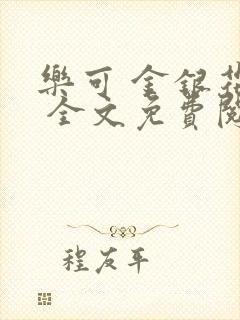 樂可 金銀花
全文免費閱
程友年